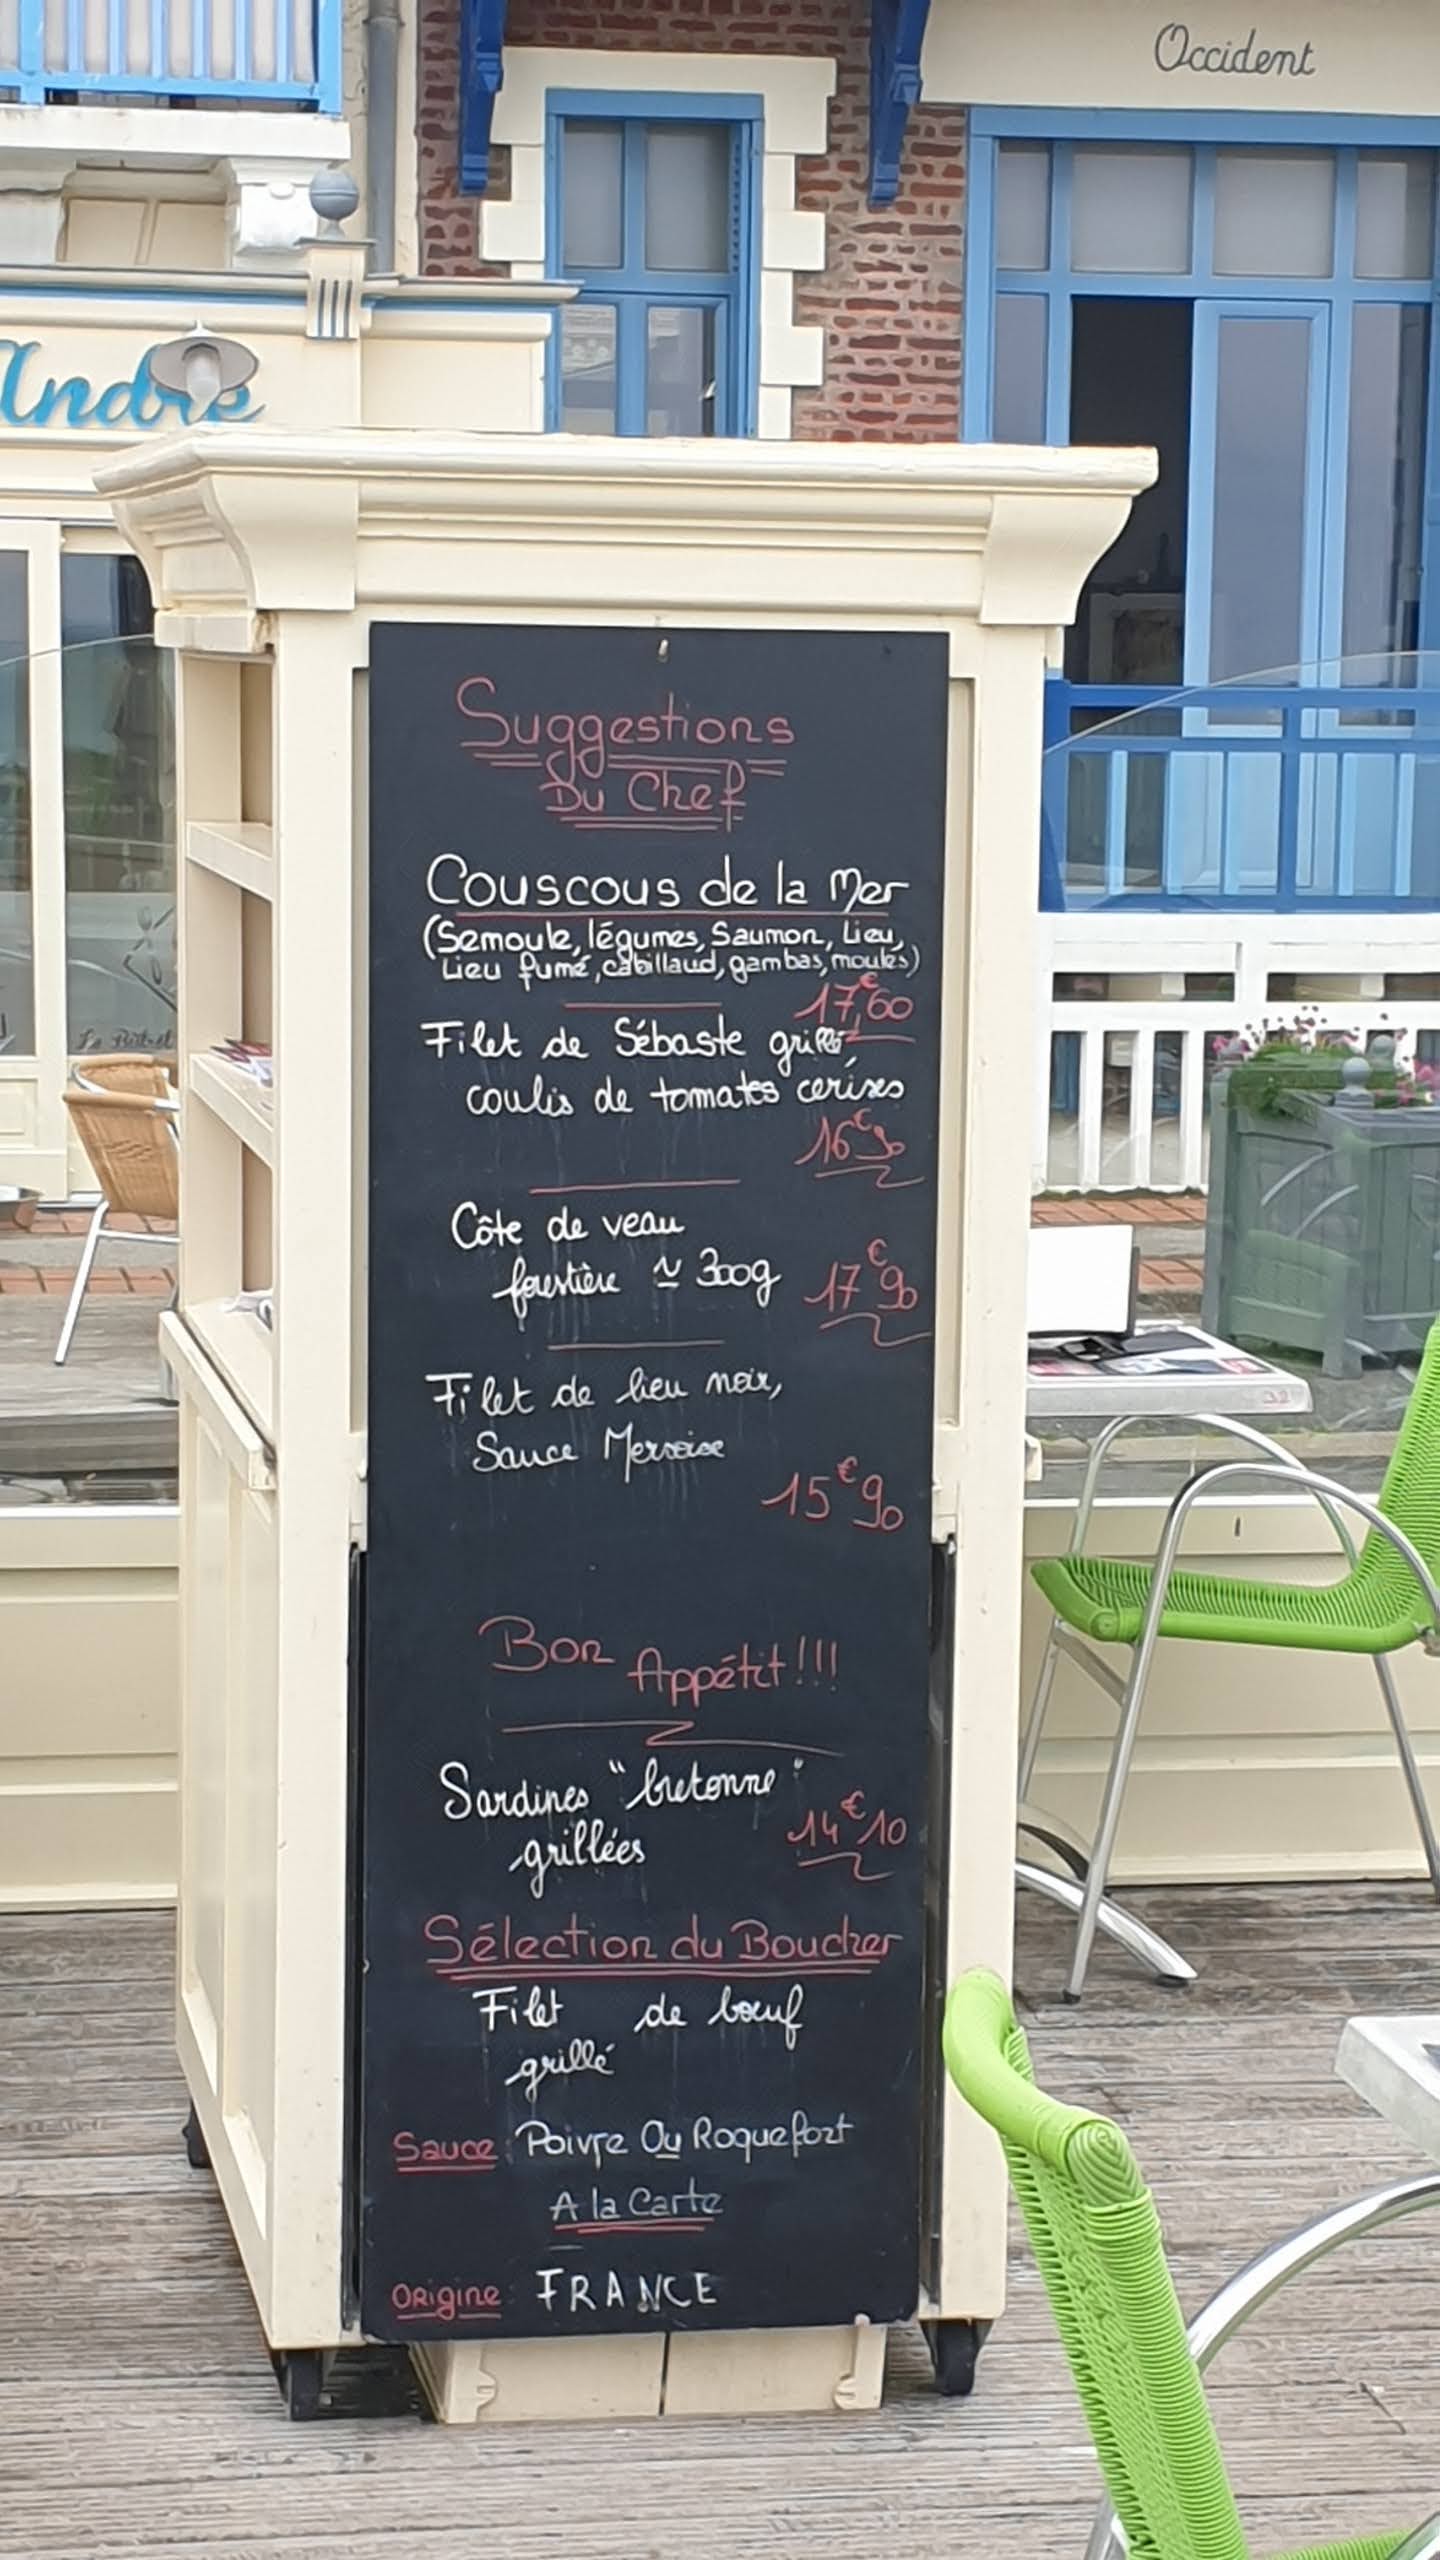 Occident
André
Suggestions
Du Chef
Couscous de la Mer
(Semoule, légumes, Saumon, Lieu,
Lieu fumé, cabillaud, gambas, moules)
17,€60
Filet de Sébaste grillé,
coulis de tomates cerises
16€90
Côte de veau
forestière ≃ 300g 17€90
Filet de lieu noir,
Sauce Mersoise
15€90
Bon Appétit!!!
Sardines "bretonne"
grillées 14€10
Sélection du Boucher
Filet de bœuf
grillé
Sauce: Poivre Ou Roquefort
A la Carte
Origine: FRANCE